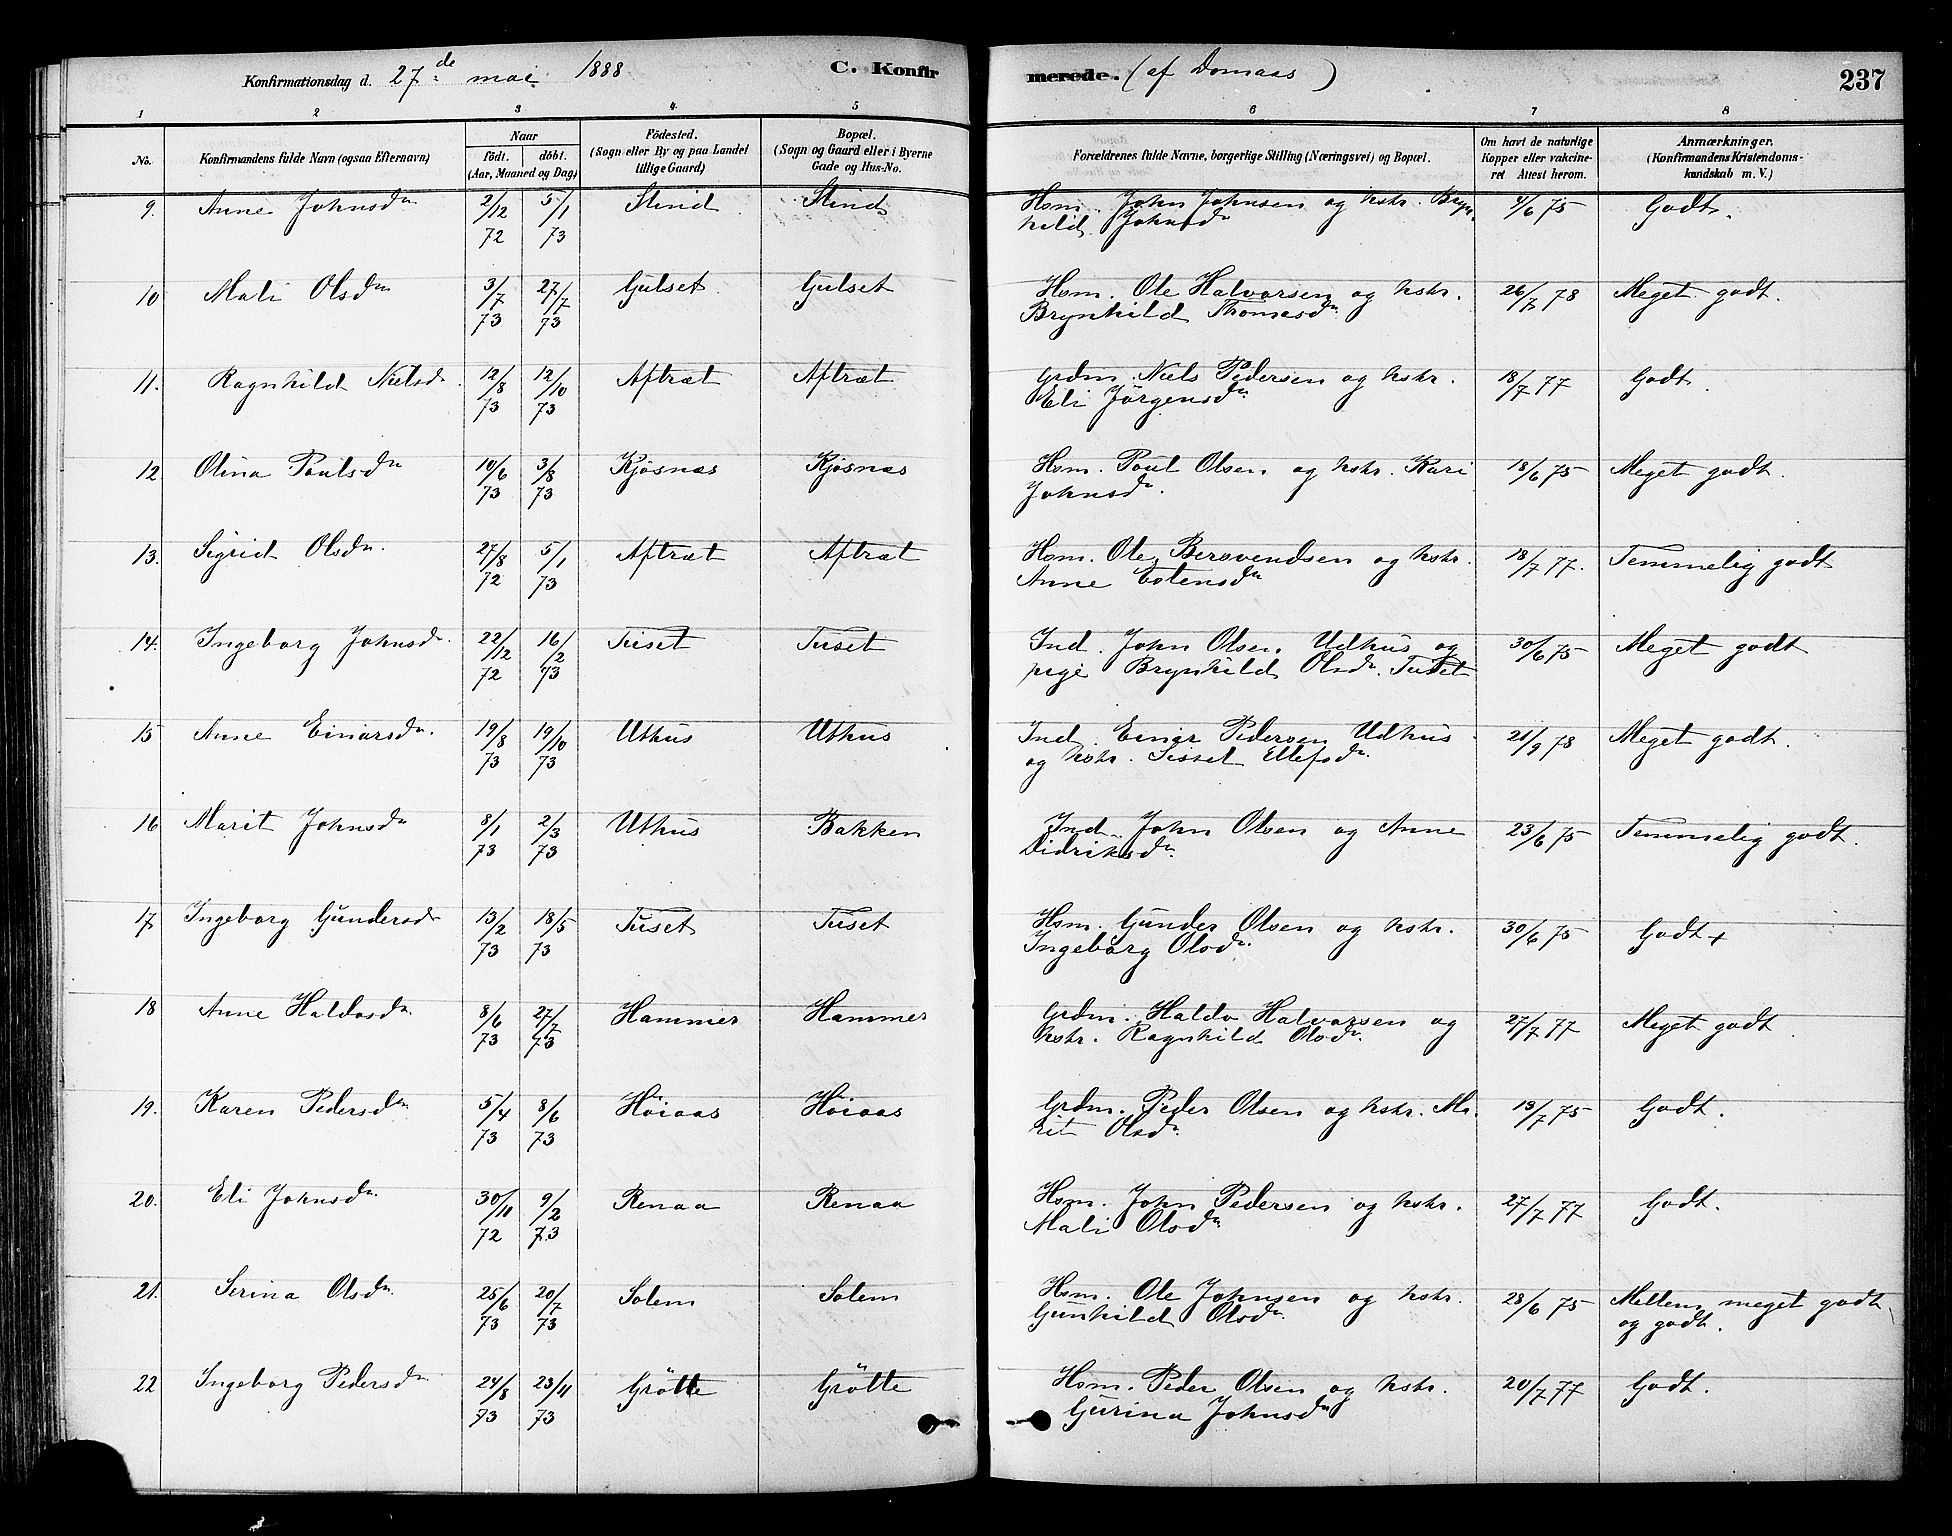 Konfirmationsdag d. 27de mai 1888 C. Konfirmerede. (af Domaas) 237
1 2 3 4 5 6 7 8
No. Konfirmandens fulde Navn (ogsaa Efternavn) Naar födt. döbt. (Aar, Maaned og Dag) Födested. (Sogn eller By og paa Landet tillige Gaard) Bopæl. (Sogn og Gaard eller i Byerne Gade og Hus-No. Forældrenes fulde Navne, borgerlige Stilling (Næringsvei) og Bopæl. Om havt de naturlige Kopper eller vakcineret Attest herom. Anmærkninger. (Konfirmandens Kristendomskundskab m. V.)
9. Anne Johnsdr 2/12 72 5/1 73 Slind Slind Hsm. John Johnsen og hstr. Brynhild Johnsdr 4/6 75 Godt.
10 Mali Olsdr 3/7 73 27/7 73 Gulset Gulset Hsm. Ole Halvorsen og hstr. Brynhild Thomasdr 26/7 78 Meget godt.
11. Ragnhild Nielsdr 12/8 73 12/10 73 Aftræt Aftræt Grdm. Niels Pedersen og hstr. Eli Jörgensdr 18/7 77 Godt.
12 Olina Paulsdr 10/6 73 3/8 73 Kjösnæs Kjösnæs Hsm. Poul Olsen og hstr. Kari Johnsdr. 18/6 75 Meget godt.
13. Sigrid Olsdr. 27/8 72 5/1 73 Aftræt Aftræt Hsm. Ole Bersvendsen og hstr. Anne Estensdr 18/7 77. Temmelig godt
14. Ingeborg Johnsdr. 22/12 72 16/2 73 Tuset Tuset Ind. John Olsen Udhus og pige Brynhild Olsdr. Tuset 30/6 75 Meget godt
15 Anne Einarsdr. 19/8 73 19/10 73 Uthus Uthus Ind. Einar Pedersen Udhus og hstr. Sisset Ellefsdr. 21/9 78 Meget godt.
16 Marit Johnsdr 8/1 73 2/3 73 Uthus Bakken Ind. John Olsen og Anne Didriksdr. 23/6 75 Temmelig godt.
17 Ingeborg Gundersdr 13/2 73 18/5 73 Tuset Tuset Hsm. Gunder Olsen og hstr. Ingeborg Olsdr. 30/6 75 Godt +
18 Anne Haldosdr. 8/6 73 27/7 73 Hammer Hammer Grdm. Haldo Halvorsen og hstr. Ragnhild Olsdr. 27/7 77 Meget godt.
19. Karen Pedersdr 5/4 73 8/6 73 Höiaas Höiaas Grdm. Peder Olsen og hstr. Marit Olsdr. 19/7 75 Godt.
20. Eli Johnsdr. 30/11 72 9/2 73 Renaa Renaa Hsm. John Pedersen og hstr. Mali Olsdr 27/7 77 Godt.
21. Serina Olsdr. 25/6 73 20/7 73 Solem Solem Hsm. Ole Johnsen og hstr. Gunhild Olsdr. 28/6 75 Mellem meget godt og godt.
22 Ingeborg Pedersdr 24/8 73 23/11 73 Grötte Grötte Hsm. Peder Olsen og hstr. Gurina Johnsdr 20/7 77 Godt.